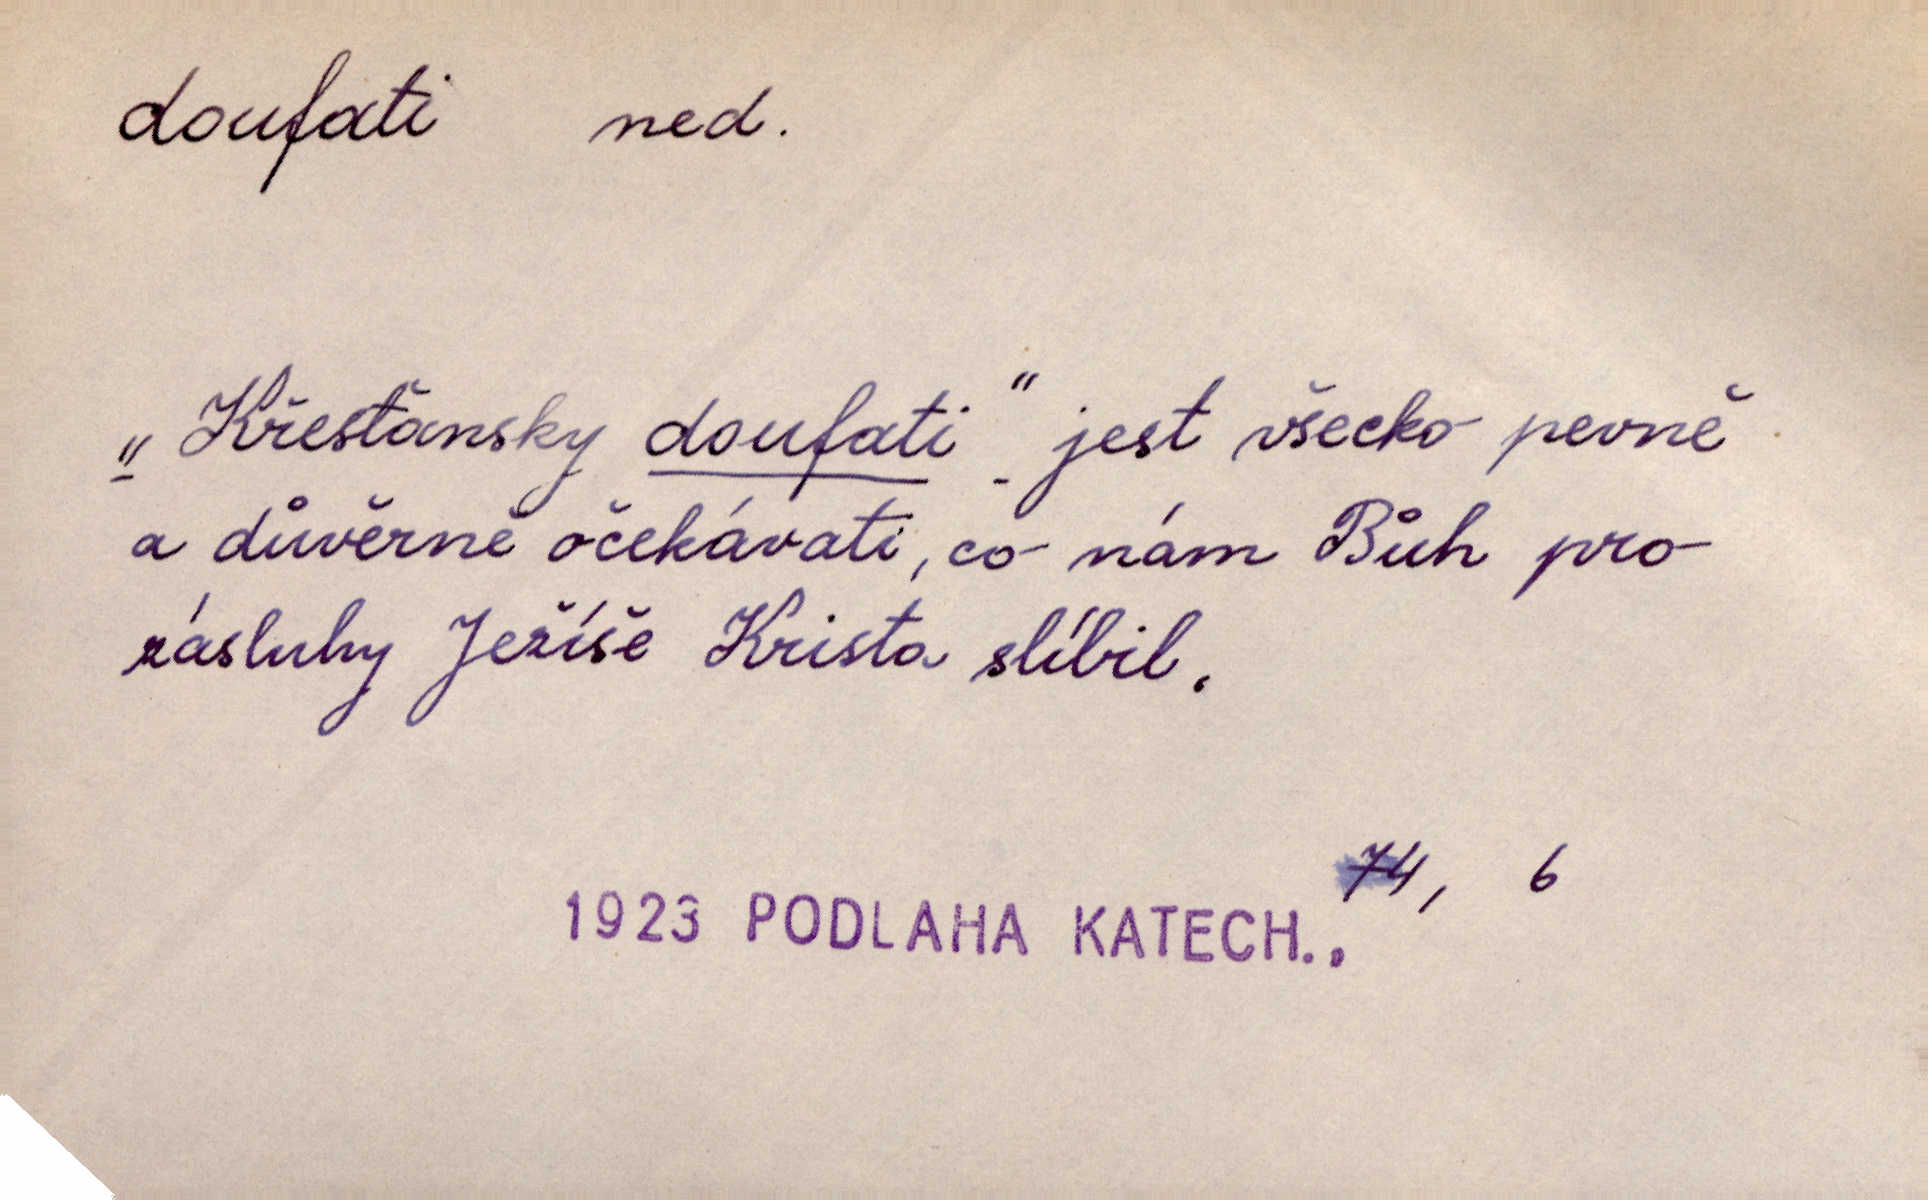 doufati ned.
„Křesťansky doufati" jest všecko pevně
a důvěrně očekávati, co nám Bůh pro
zásluhy Ježíše Krista slíbil.
74, 6
1923 PODLAHA KATECH..